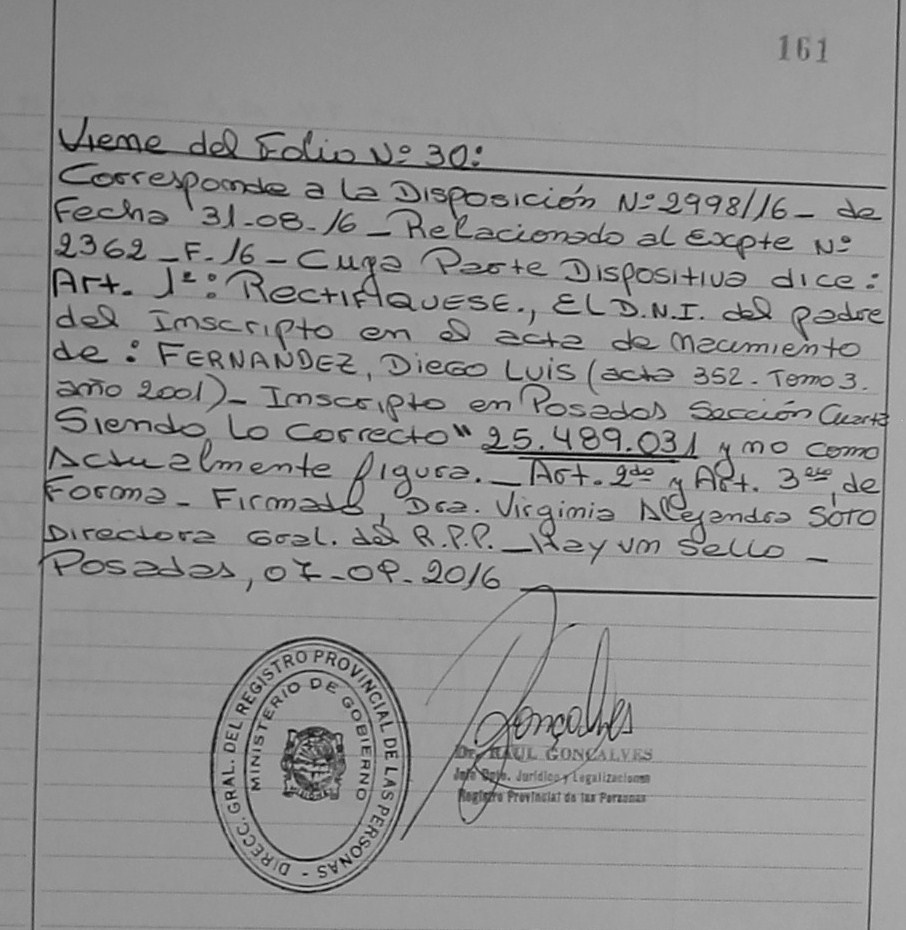 161
Viene del Folio Nº 30:
Corresponde a la Disposición Nº 2998/16 _ de
Fecha 31-08-16 _ Relacionado al Expte Nº
2362 _ F. 16 _ Cuya Parte Dispositiva dice:
Art. 1º: RECTIFIQUESE., EL D.N.I. del padre
del Inscripto en el acta de nacimiento
de: FERNANDEZ, Diego Luis (acta 352. Tomo 3.
año 2001) _ Inscripto en Posadas Sección Cuarta
Siendo lo correcto "25.489.031 y no como
Actualmente figura. _ Art. 2do y Art. 3ero, de
Forma _ Firmado, Dra. Virginia Alejandra SOTO
Directora Gral. del R.P.P. _ Hay un sello _
Posadas, 07-09-2016
DIRECC. GRAL. DEL REGISTRO PROVINCIAL DE LAS PERSONAS -
MINISTERIO DE GOBIERNO
Gonçalves
Dr. RAUL GONÇALVES
Jefe Dpto. Jurídico y Legalizaciones
Registro Provincial de las Personas